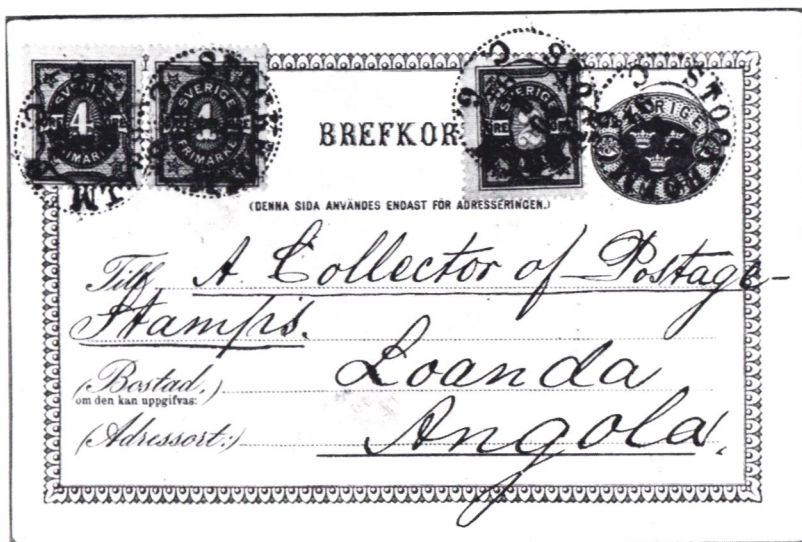 SVERIGE
4
FRIMÄRKE
SVERIGE
4
FRIMÄRKE
SVERIGE
BREFKOR
STOCKHOLM
(DENNA SIDA ANVÄNDES ENDAST FÖR ADRESSERINGEN.)
Till A Collector of Postage-
Stamps.
(Bostad,) Loanda
om den kan uppgifvas:
(Adressort:) Angola.